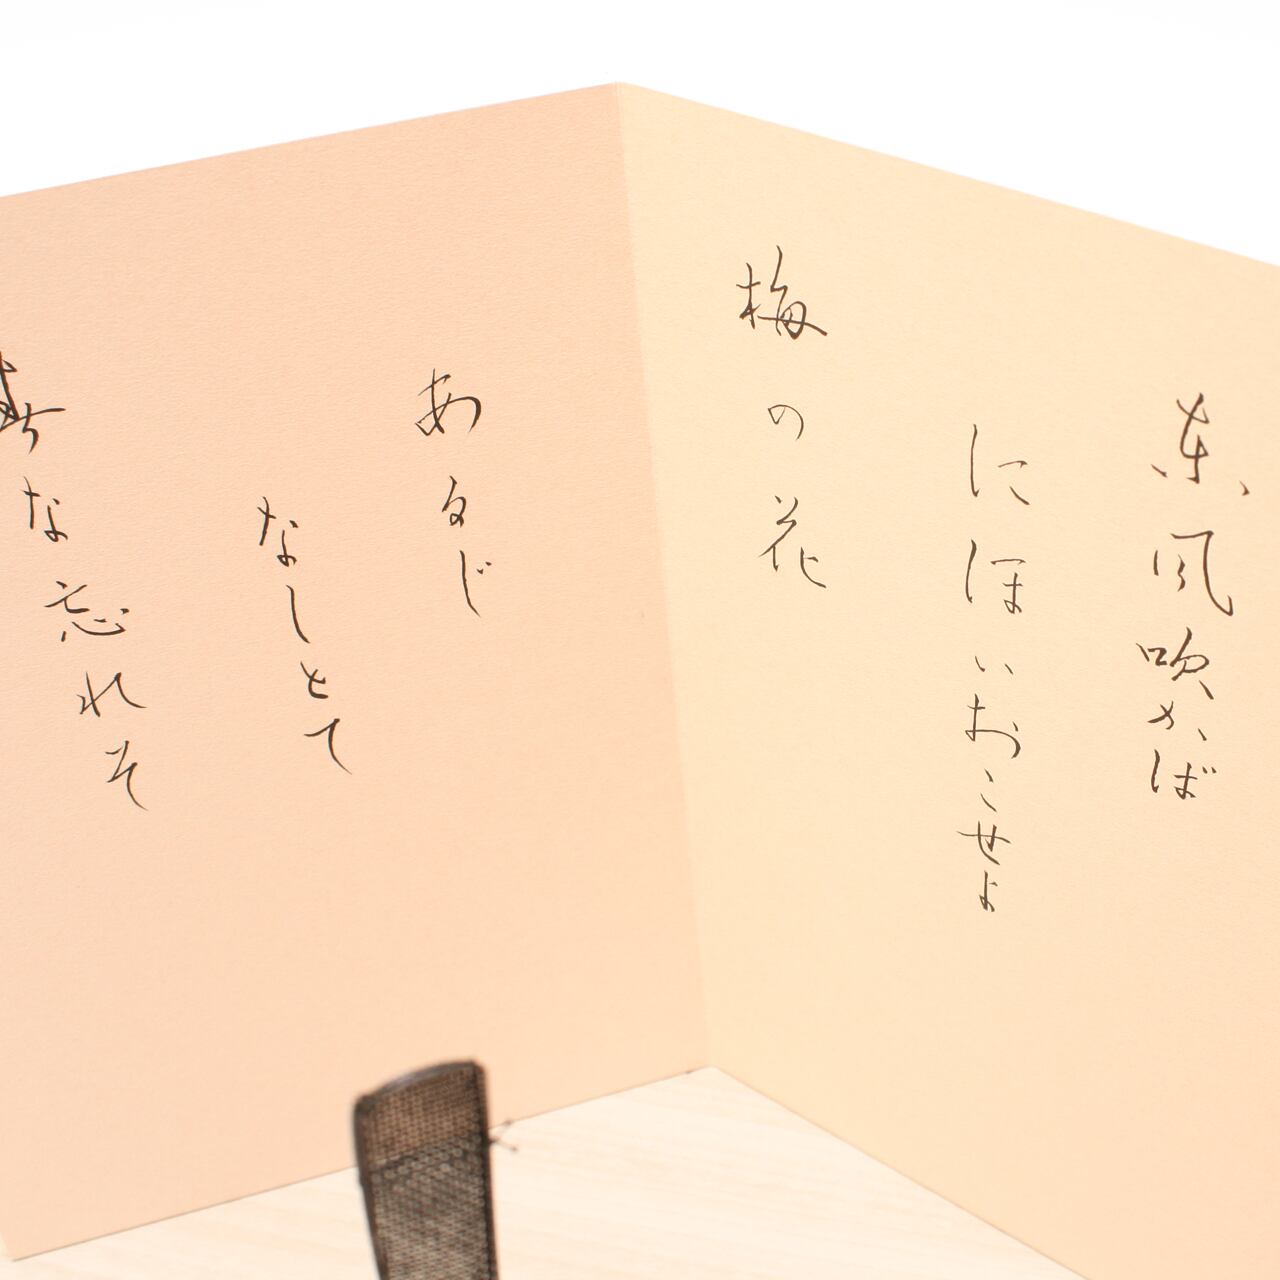 東風吹かば
にほいおこせよ
梅の花
あるじ
なしとて
春な忘れそ